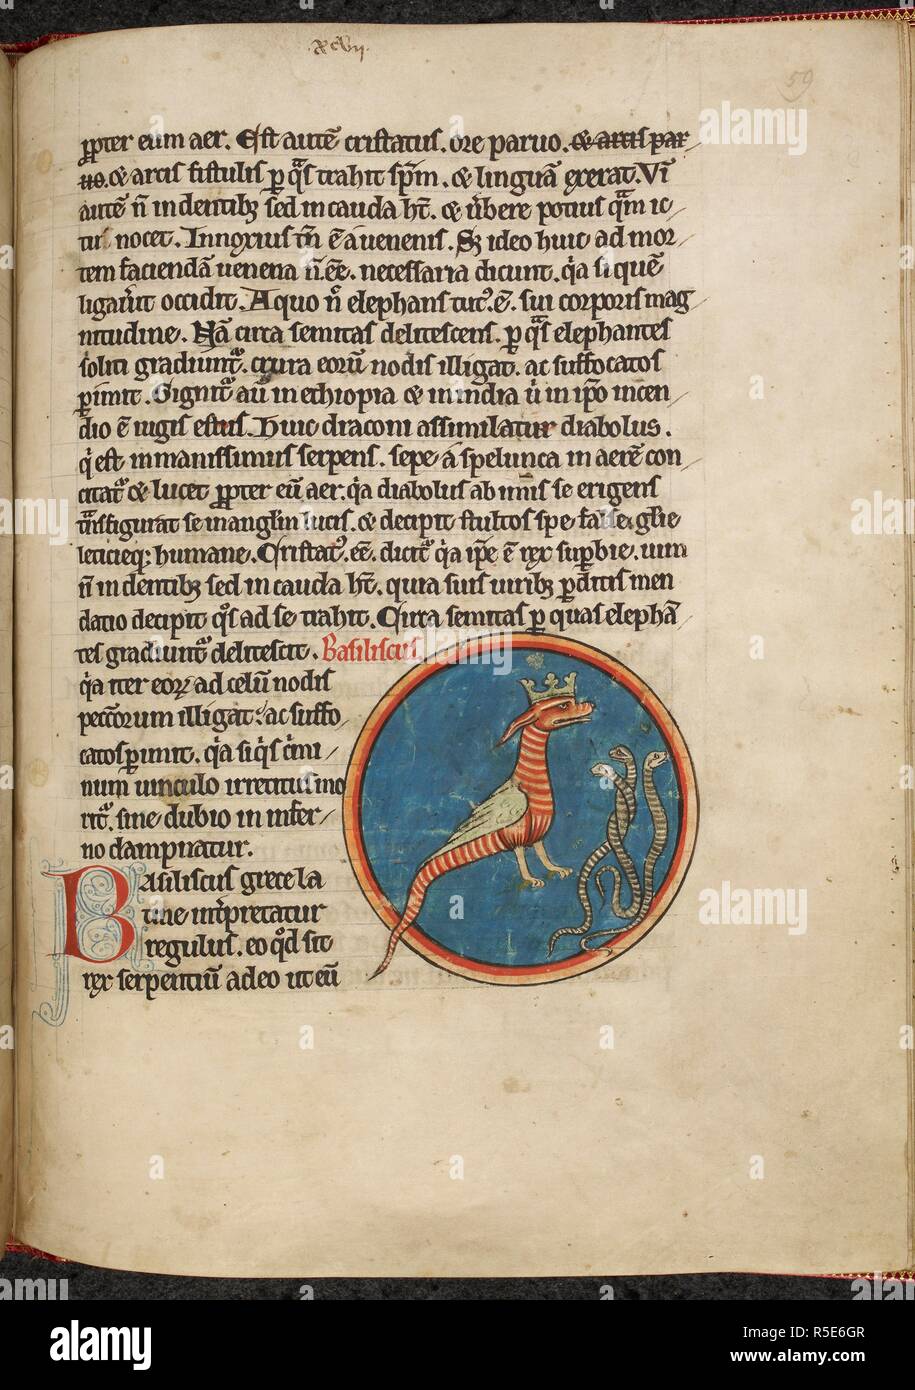 xcvii.
59
ppter eum aer. Est autē cristatus. ore paruo. & artis par
uo. & artis fistulis p q̄s trahit sp̄m. & linguā exerat. Vī
autē ñ in dentibȝ sed in cauda h̄t. & ūbere potius q̄m ic
tu nocet. Innoxius tñ ē a uenenis. Sȝ ideo huic ad mor
tem faciendā uenena ñ. eē. necessaria dicunt. q̄a si quē
ligarit occidit. A quo ñ elephans tut'. ē. sui corporis mag
nitudine. Nā circa semitas delitescens. p q̄s elephantes
soliti gradiunt̄. crura eorū nodis illigat. ac suffocatos
pimit. Gignit̄ aū in ethiopia & in india ū in ip̄o incen
dio ē iugis estus. Huic draconi assimilatur diabolus.
q̄ est inmanissimus serpens. sepe a spelunca in aerē con
citat̄ & lucet ppter eū aer. q̄a diabolus ab imis se erigens
t̄nsfigurat se in anglm lucis. & decipit stultos spe false glie
leticieq; humane. Cristat'. eē. dicit̄ q̄a ip̄e ē rex supbie. uim
ñ in dentibȝ sed in cauda h̄t. quia suis uiribȝ pditis men
datio decipit q̄s ad se trahit. Circa semitas p quas elephā
tes gradiunt̄ delitescit. Basiliscus
q̄a iter eorꝝ ad celū nodis
peccatorum illigat. ac suffo
catos pimit. q̄a siq̄s c̄mi
num uinculo irretitus mo
rit̄. sine dubio in infer
no dampnatur.
Basiliscus grece la
tine int̄pretatur
regulus. eo q̄d sit
rex serpentiū adeo ut eū
alamy
R5E6GR
www.alamy.com